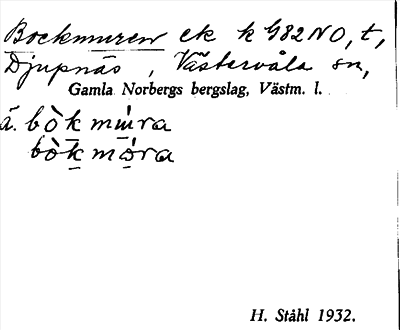 Bockmuren ek k G82NO, t,
Djupnäs, Västervåla sn,
Gamla Norbergs bergslag, Västm. l.
ä. bòk mura
bòk móra
H. Ståhl 1932.